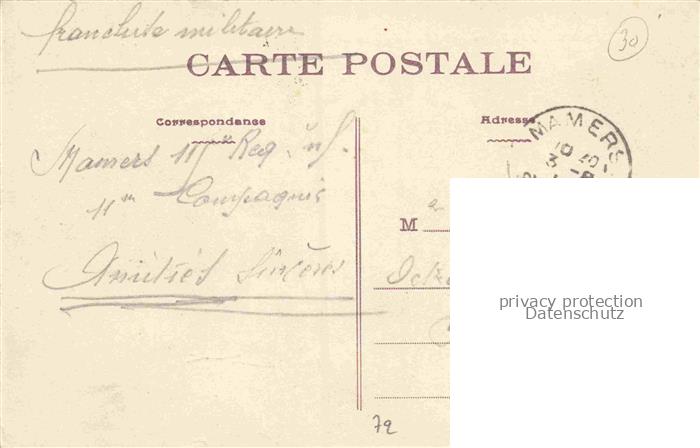 franchise militaire
30
CARTE POSTALE
Correspondance
Adresse
MAMERS
10 40
3 -8
Mamers 11 Reg. inf.
11em Compagnie
M
Amitiés Sincères
privacy protection
Datenschutz
72